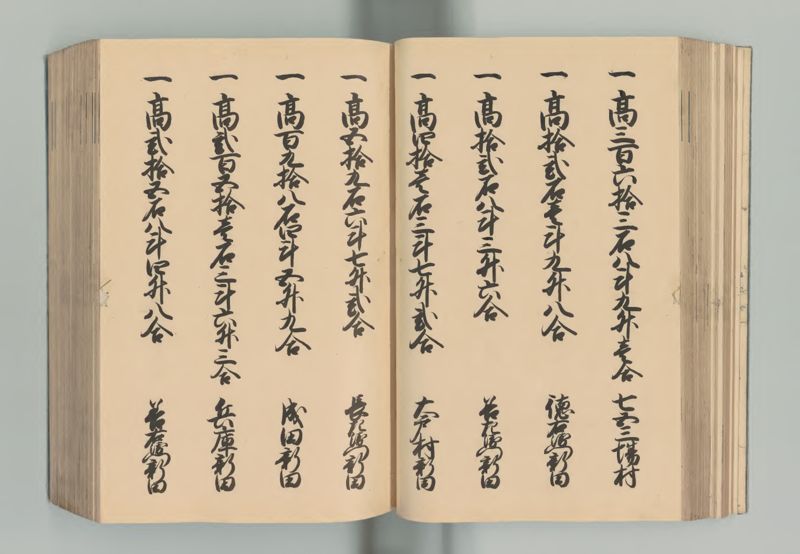 一 高三百六拾三石八斗九升壱合 七五三場村
一 高拾弐石壱斗九升八合 徳右衛門新田
一 高拾弐石八斗三升六合 若左衛門新田
一 高四拾壱石三斗七升弐合 大戸村新田
一 高五拾九石六斗七升弐合 長左衛門新田
一 高百九拾八石四斗五升九合 成田新田
一 高弐百五拾壱石三斗六升三合 兵庫新田
一 高弐拾五石八斗四升八合 若右衛門新田